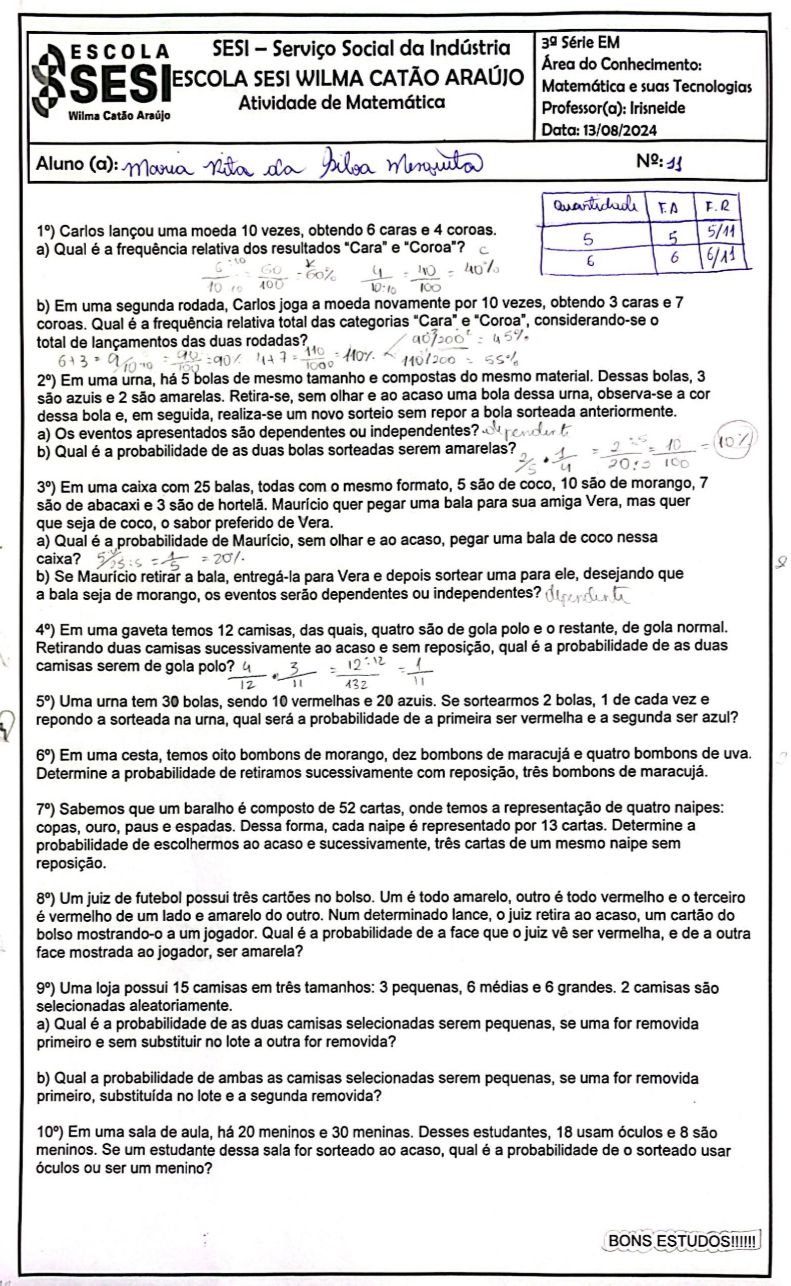 ESCOLA
SESI
Wilma Catão Araújo
SESI – Serviço Social da Indústria
ESCOLA SESI WILMA CATÃO ARAÚJO
Atividade de Matemática
3ª Série EM
Área do Conhecimento:
Matemática e suas Tecnologias
Professor(a): Irisneide
Data: 13/08/2024
Aluno (a): Maria Rita da Silva Mesquita Nº: 11
Quantidade F.A F.R
5 5 5/11
6 6 6/11
1º) Carlos lançou uma moeda 10 vezes, obtendo 6 caras e 4 coroas.
a) Qual é a frequência relativa dos resultados "Cara" e "Coroa"? C
6/10 :10/10 = 60/100 = 60% K 4/10 :10 = 40/100 = 40%
b) Em uma segunda rodada, Carlos joga a moeda novamente por 10 vezes, obtendo 3 caras e 7
coroas. Qual é a frequência relativa total das categorias "Cara" e "Coroa", considerando-se o
total de lançamentos das duas rodadas? 90/200 = 45%
6+3 = 9/10 = 90/100 = 90% 4+7 = 110/1000 = 110% 110/200 = 55%
2º) Em uma urna, há 5 bolas de mesmo tamanho e compostas do mesmo material. Dessas bolas, 3
são azuis e 2 são amarelas. Retira-se, sem olhar e ao acaso uma bola dessa urna, observa-se a cor
dessa bola e, em seguida, realiza-se um novo sorteio sem repor a bola sorteada anteriormente.
a) Os eventos apresentados são dependentes ou independentes? dependent
b) Qual é a probabilidade de as duas bolas sorteadas serem amarelas? 2/5 • 1/4 = 2/20 = 10/100 = 10%
3º) Em uma caixa com 25 balas, todas com o mesmo formato, 5 são de coco, 10 são de morango, 7
são de abacaxi e 3 são de hortelã. Maurício quer pegar uma bala para sua amiga Vera, mas quer
que seja de coco, o sabor preferido de Vera.
a) Qual é a probabilidade de Maurício, sem olhar e ao acaso, pegar uma bala de coco nessa
caixa? 5/25 :5 = 1/5 = 20%
b) Se Maurício retirar a bala, entregá-la para Vera e depois sortear uma para ele, desejando que
a bala seja de morango, os eventos serão dependentes ou independentes? dependente
4º) Em uma gaveta temos 12 camisas, das quais, quatro são de gola polo e o restante, de gola normal.
Retirando duas camisas sucessivamente ao acaso e sem reposição, qual é a probabilidade de as duas
camisas serem de gola polo? 4/12 • 3/11 = 12/132 :12 = 1/11
5º) Uma urna tem 30 bolas, sendo 10 vermelhas e 20 azuis. Se sortearmos 2 bolas, 1 de cada vez e
repondo a sorteada na urna, qual será a probabilidade de a primeira ser vermelha e a segunda ser azul?
6º) Em uma cesta, temos oito bombons de morango, dez bombons de maracujá e quatro bombons de uva.
Determine a probabilidade de retiramos sucessivamente com reposição, três bombons de maracujá.
7º) Sabemos que um baralho é composto de 52 cartas, onde temos a representação de quatro naipes:
copas, ouro, paus e espadas. Dessa forma, cada naipe é representado por 13 cartas. Determine a
probabilidade de escolhermos ao acaso e sucessivamente, três cartas de um mesmo naipe sem
reposição.
8º) Um juiz de futebol possui três cartões no bolso. Um é todo amarelo, outro é todo vermelho e o terceiro
é vermelho de um lado e amarelo do outro. Num determinado lance, o juiz retira ao acaso, um cartão do
bolso mostrando-o a um jogador. Qual é a probabilidade de a face que o juiz vê ser vermelha, e de a outra
face mostrada ao jogador, ser amarela?
9º) Uma loja possui 15 camisas em três tamanhos: 3 pequenas, 6 médias e 6 grandes. 2 camisas são
selecionadas aleatoriamente.
a) Qual é a probabilidade de as duas camisas selecionadas serem pequenas, se uma for removida
primeiro e sem substituir no lote a outra for removida?
b) Qual a probabilidade de ambas as camisas selecionadas serem pequenas, se uma for removida
primeiro, substituída no lote e a segunda removida?
10º) Em uma sala de aula, há 20 meninos e 30 meninas. Desses estudantes, 18 usam óculos e 8 são
meninos. Se um estudante dessa sala for sorteado ao acaso, qual é a probabilidade de o sorteado usar
óculos ou ser um menino?
BONS ESTUDOS!!!!!!